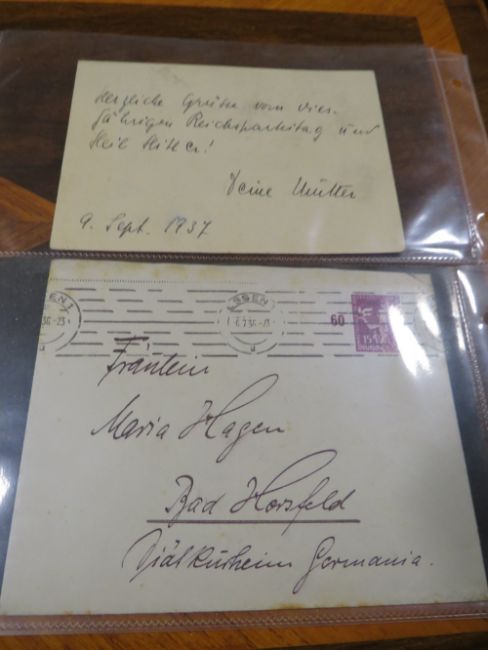 Herzliche Grüße vom dies-
jährigen Reichsparteitag und
Heil Hitler!
Deine Mutter
9. Sept. 1937
SSEN
60
Fräulein
Maria Hagen
Bad Horsfeld
Diätkurheim Germania.